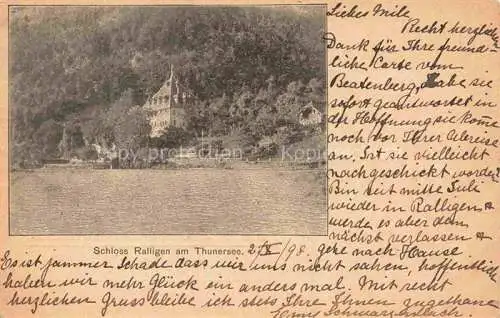 Liebes Mile,
Recht herzlichen
Dank für Ihre freund-
liche Carte vom
Beatenberg, habe sie
sofort beantwortet in
der Hoffnung sie komme
noch vor Ihrer Abreise
an. Ist sie vielleicht
nachgeschickt worden?
Bin seit mitte Juli
wieder in Ralligen &
werde es aber dem
nächst verlassen &
Schloss Ralligen am Thunersee. 2/X/98. gehe nach Hause.
Es ist jammer Schade dass wir uns nicht sahen, hoffentlich
haben wir mehr Glück ein anders mal. Mit recht
herzlichen Gruss bleibe ich stets Ihre Ihnen zugethane